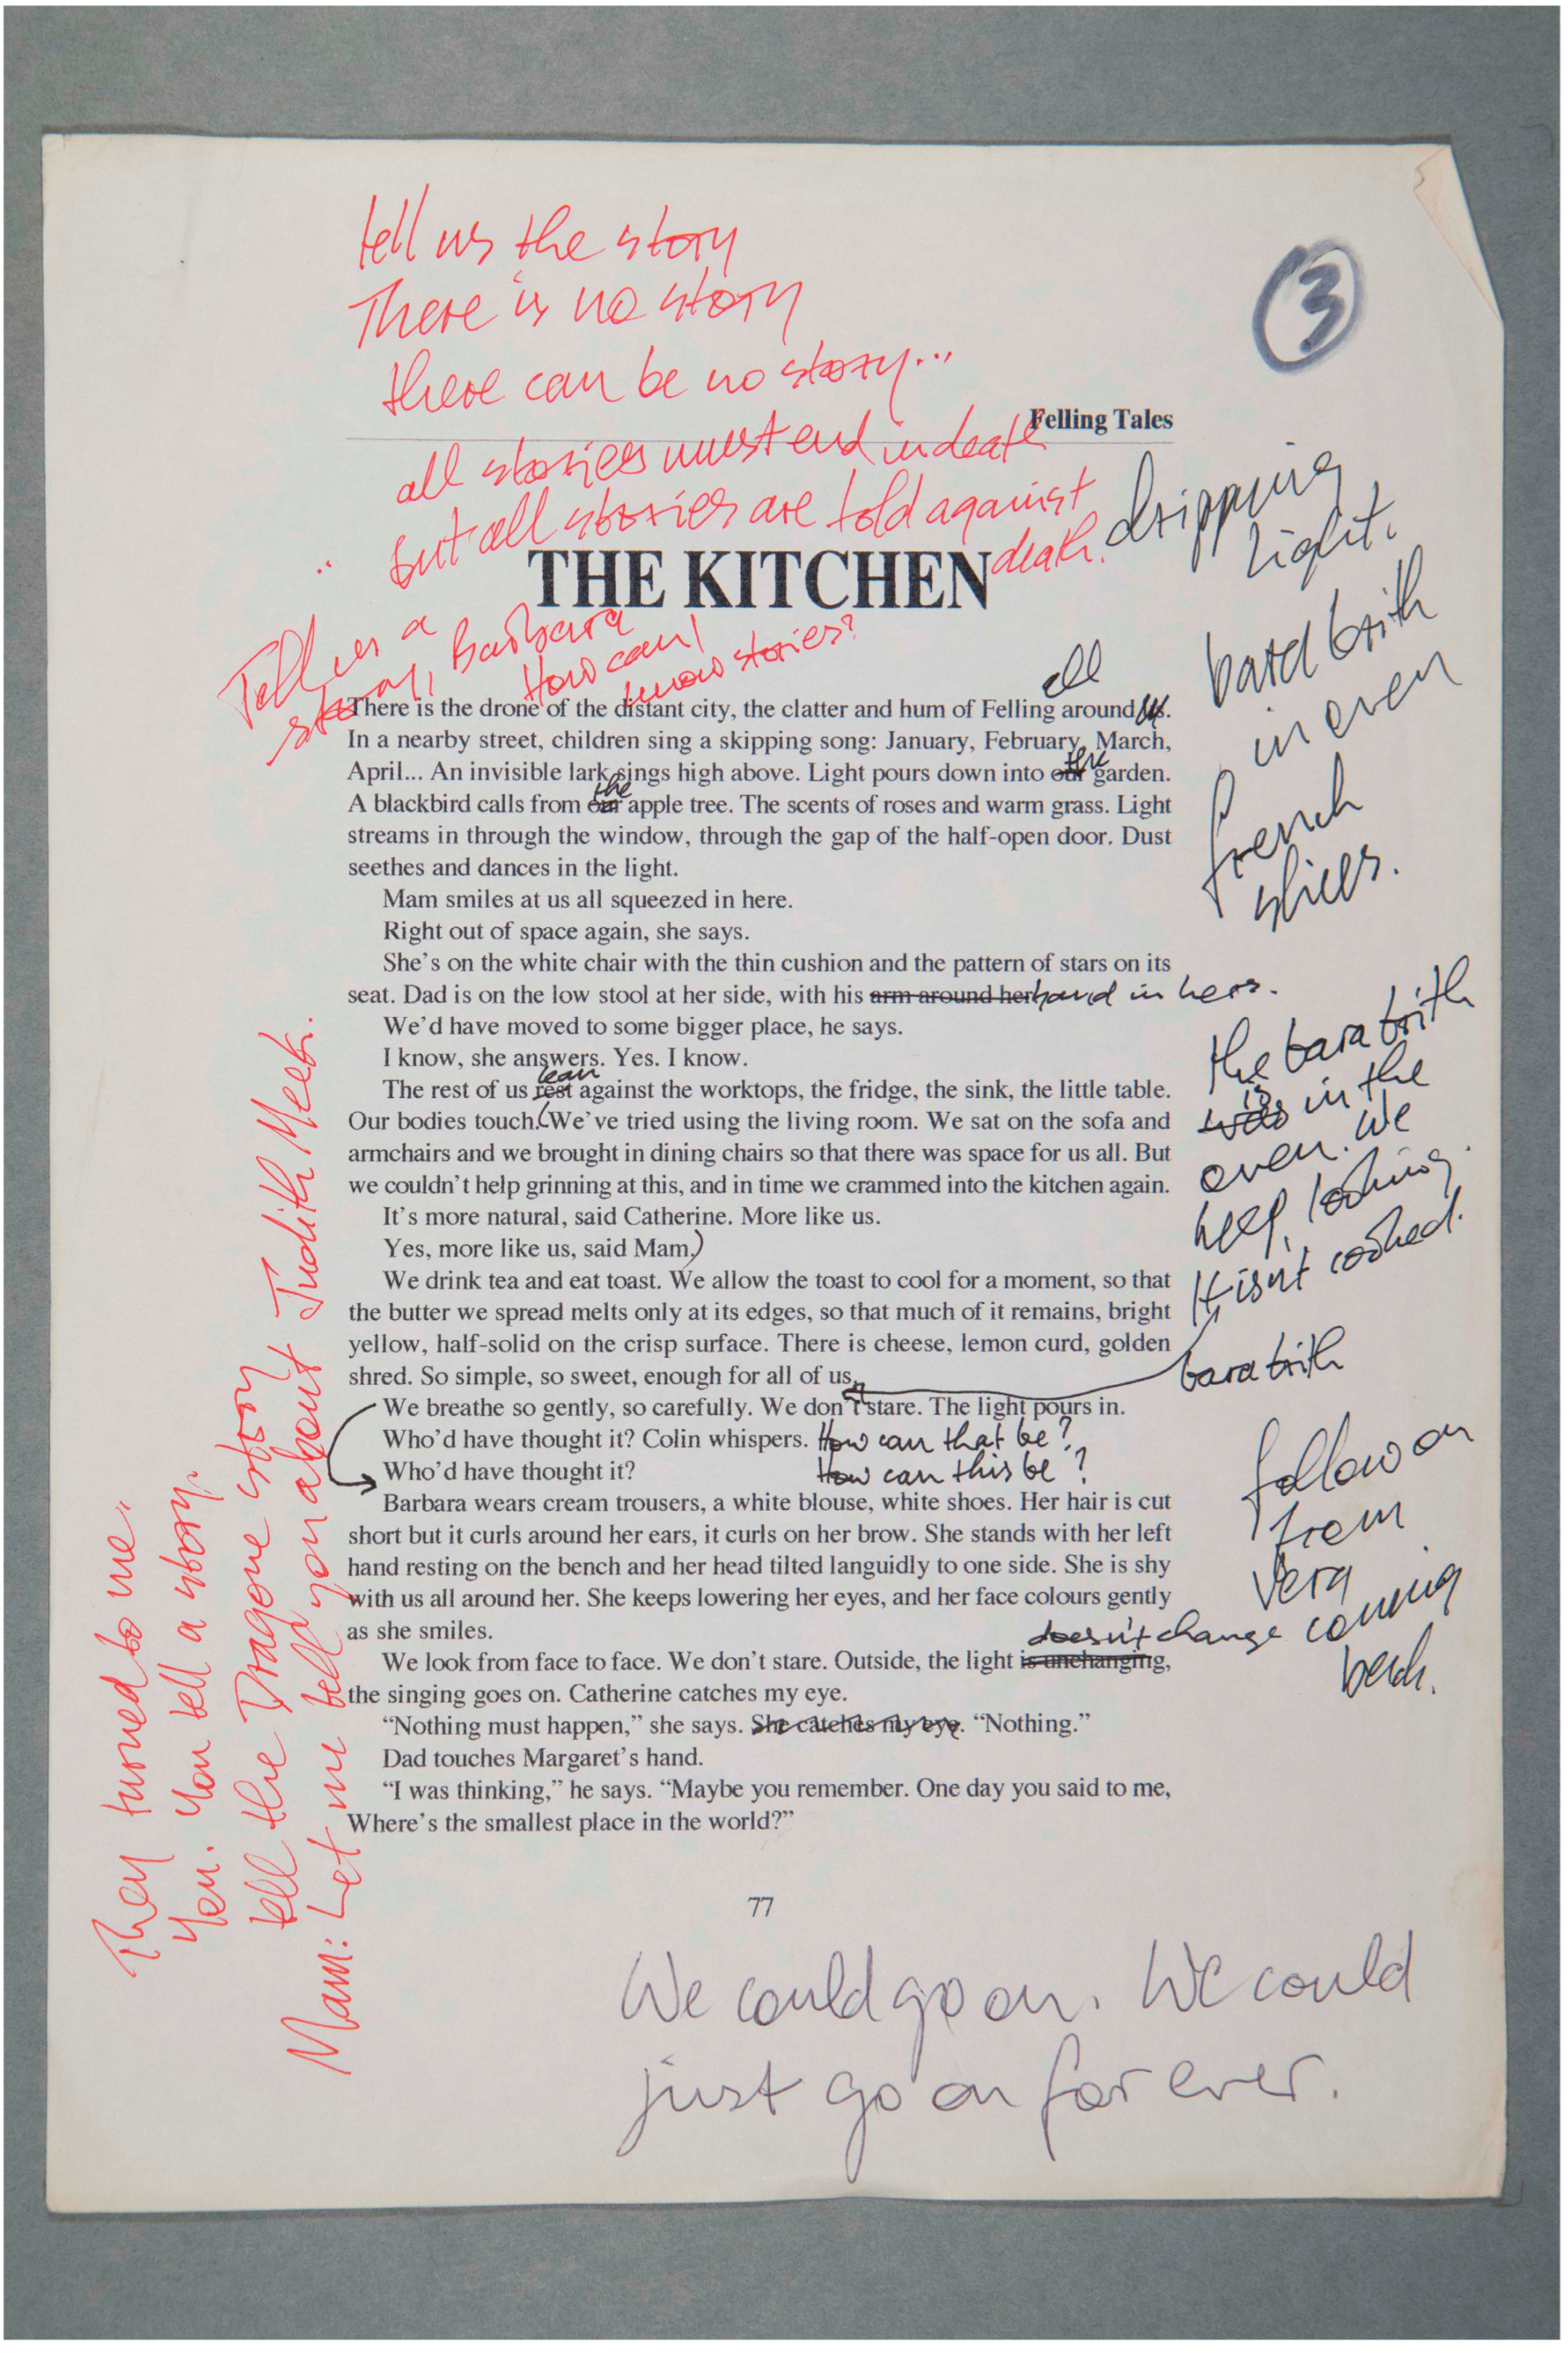 tell us the story
There is no story
there can be no story...
3
Felling Tales
all stories must end in death
but all stories are told against
death.
THE KITCHEN
Tell us a
story, Barbara
How can I
know stories?
dripping
light.
bara brith
in oven
french
stills.
all
There is the drone of the distant city, the clatter and hum of Felling around us.
In a nearby street, children sing a skipping song: January, February, March,
the
April... An invisible lark sings high above. Light pours down into our garden.
the
A blackbird calls from our apple tree. The scents of roses and warm grass. Light
streams in through the window, through the gap of the half-open door. Dust
seethes and dances in the light.
Mam smiles at us all squeezed in here.
Right out of space again, she says.
She's on the white chair with the thin cushion and the pattern of stars on its
seat. Dad is on the low stool at her side, with his arm around her hand in hers.
We'd have moved to some bigger place, he says.
I know, she answers. Yes. I know.
lean
The rest of us rest against the worktops, the fridge, the sink, the little table.
Our bodies touch. (We've tried using the living room. We sat on the sofa and
armchairs and we brought in dining chairs so that there was space for us all. But
we couldn't help grinning at this, and in time we crammed into the kitchen again.
It's more natural, said Catherine. More like us.
Yes, more like us, said Mam.)
the bara brith
is
was in the
oven. We
keep looking.
It isn't cooked.
bara brith
We drink tea and eat toast. We allow the toast to cool for a moment, so that
the butter we spread melts only at its edges, so that much of it remains, bright
yellow, half-solid on the crisp surface. There is cheese, lemon curd, golden
shred. So simple, so sweet, enough for all of us.
We breathe so gently, so carefully. We don't stare. The light pours in.
Who'd have thought it? Colin whispers. How can that be?
Who'd have thought it? How can this be?
Barbara wears cream trousers, a white blouse, white shoes. Her hair is cut
short but it curls around her ears, it curls on her brow. She stands with her left
hand resting on the bench and her head tilted languidly to one side. She is shy
with us all around her. She keeps lowering her eyes, and her face colours gently
as she smiles.
follow on
from
Vera
coming
back.
doesn't change
We look from face to face. We don't stare. Outside, the light is unchanging,
the singing goes on. Catherine catches my eye.
"Nothing must happen," she says. She catches my eye. "Nothing."
Dad touches Margaret's hand.
"I was thinking," he says. "Maybe you remember. One day you said to me,
Where's the smallest place in the world?"
77
They turned to me.
You. You tell a story.
tell the Dragone story
Mam: Let me tell you about Judith Meek.
We could go on. We could
just go on for ever.